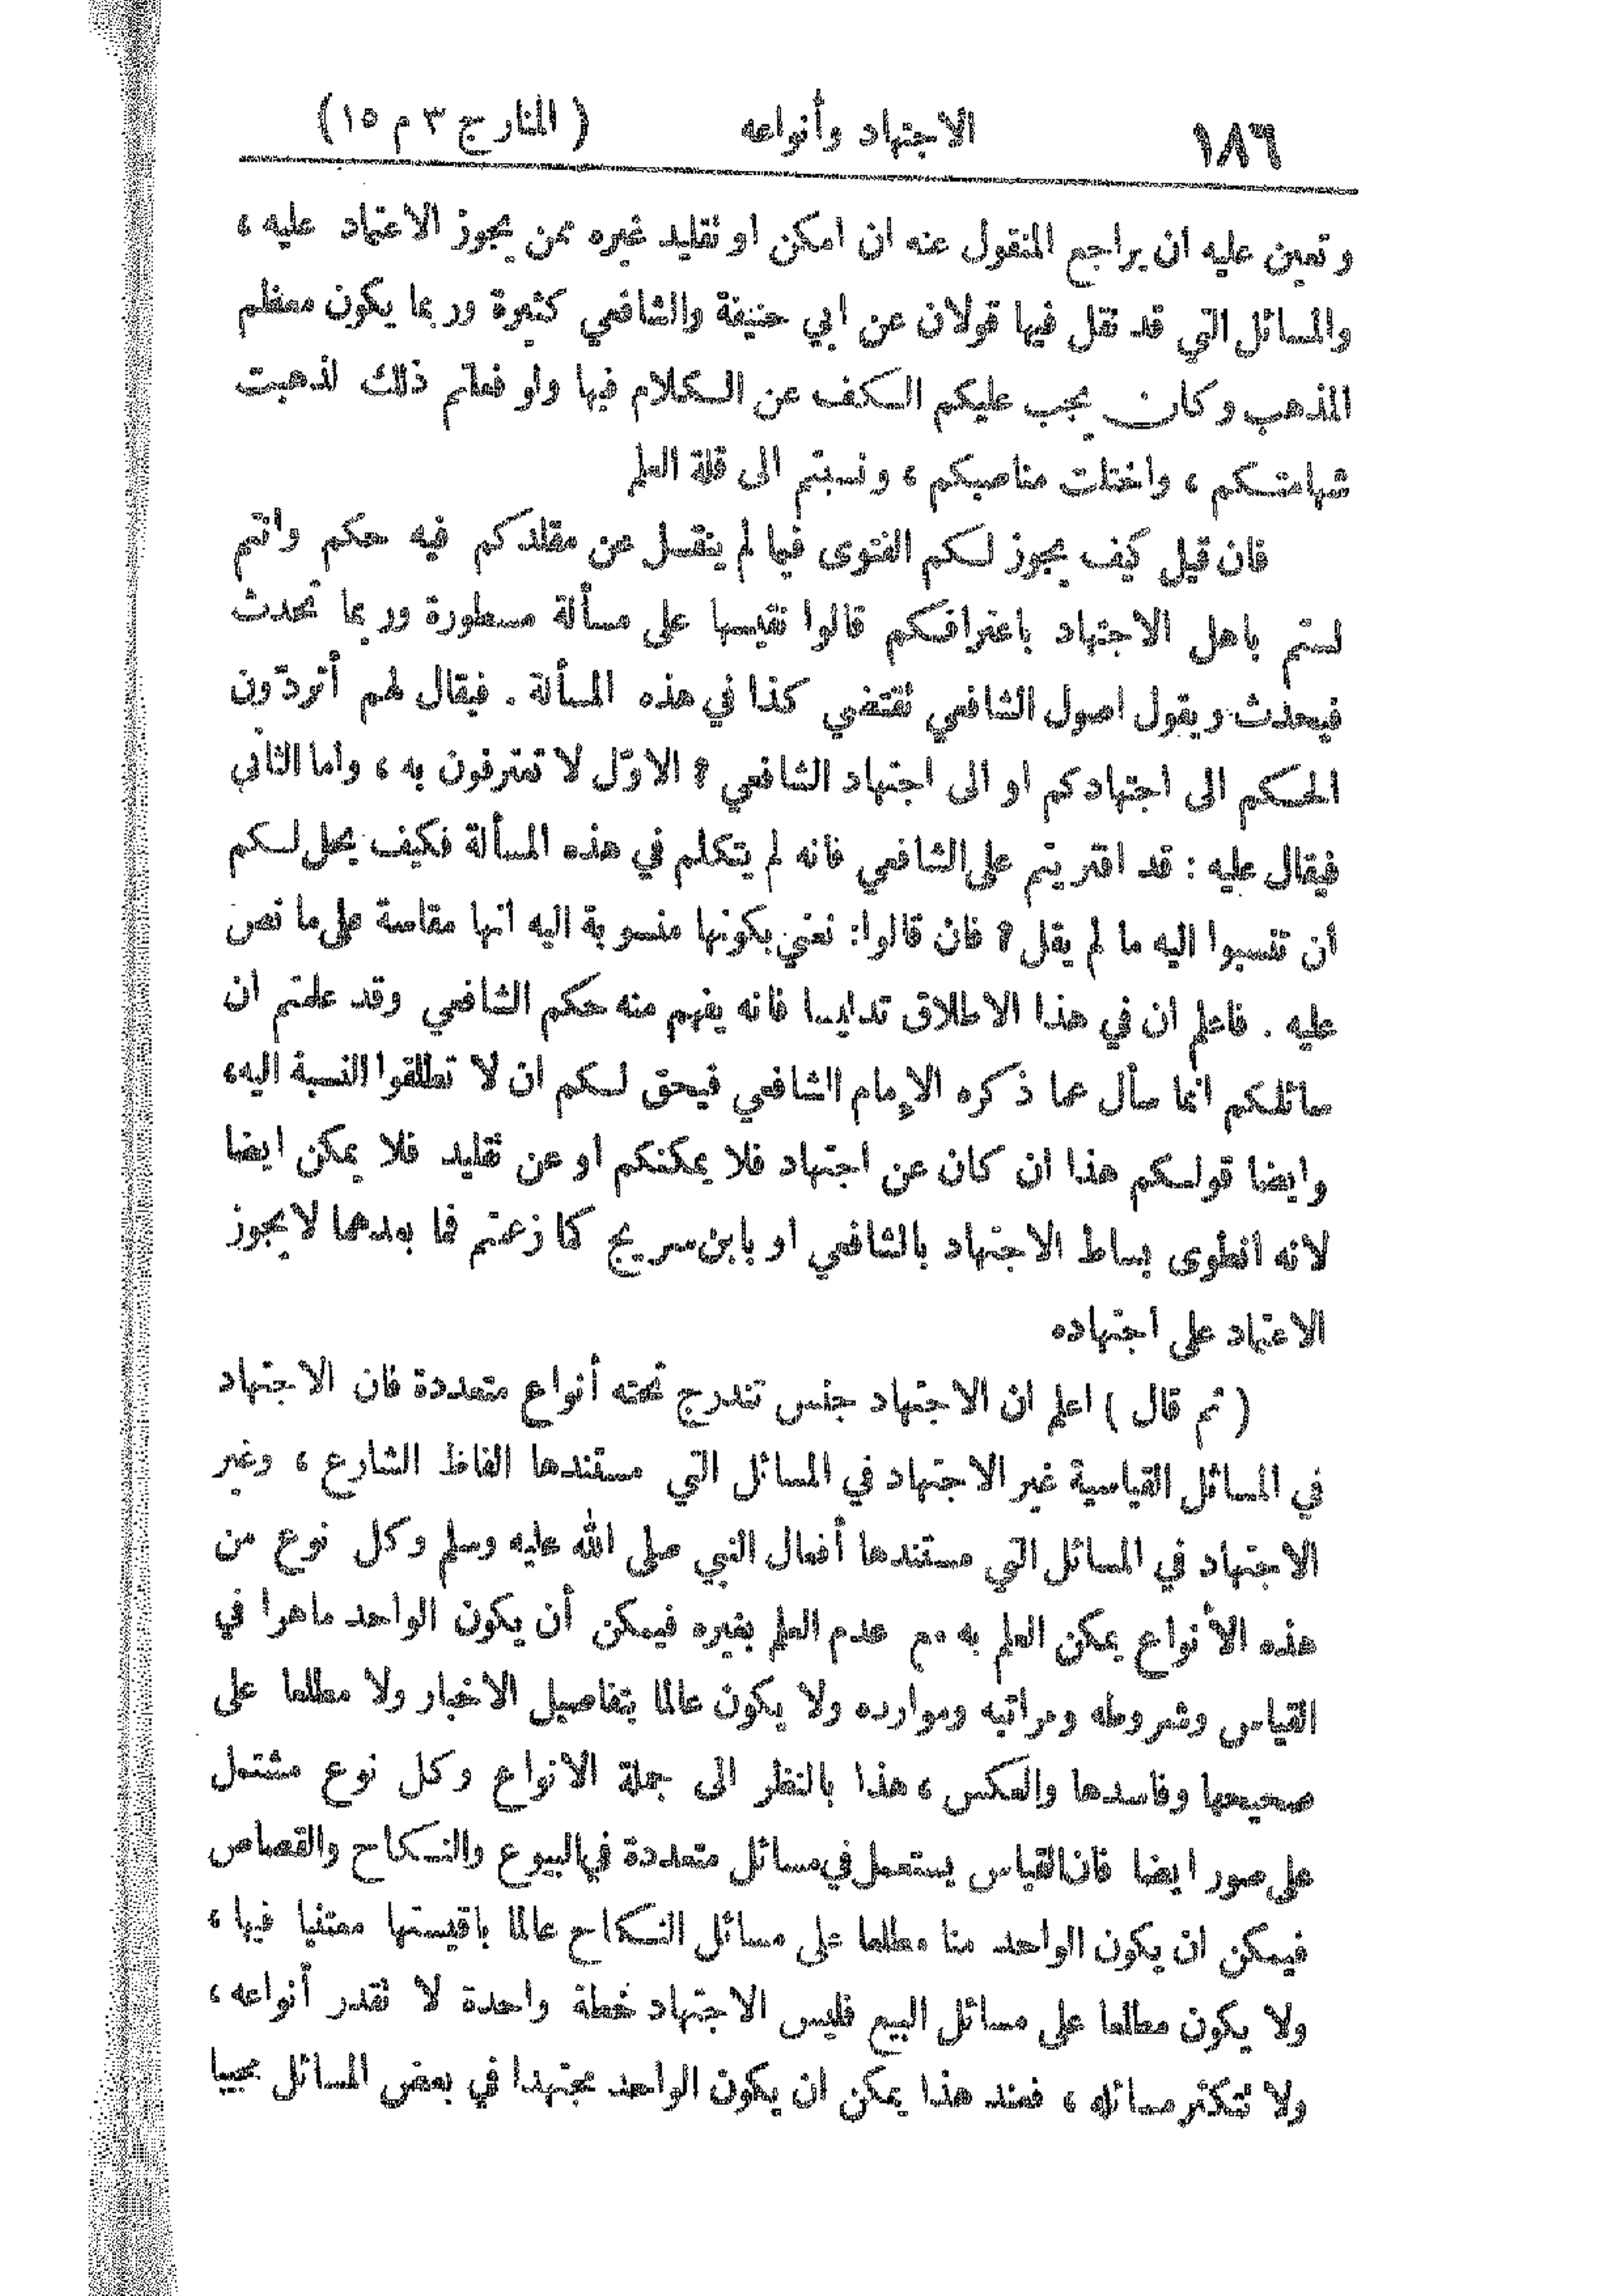 ١٨٦ الاجتهاد وأنواعه ( المنار ج ٣ م ١٥ )
وتعين عليه ان يراجع المنقول عنه ان امكن او تقليد غيره ممن يجوز الاعتماد عليه ،
والمسائل التي قد نقل فيها قولان عن ابي حنيفة والشافعي كثيرة وربما يكون معظم
المذهب وكان يجب عليكم الكف عن الكلام فيها ولو فعلتم ذلك لذهبت
شهامتكم ، واختلت مناصبكم ، ونسبتم الى قلة العلم
فان قيل كيف يجوز لكم الفتوى فيما لم ينقل عن مقلدكم فيه حكم وانتم
لستم باهل الاجتهاد باعترافكم قالوا نقيسها على مسألة مسطورة وربما تحدث
فيحدث ويقول اصول الشافعي تقتضي كذا في هذه المسألة . فيقال لهم أتردّون
الحكم الى اجتهادكم او الى اجتهاد الشافعي ؟ الاوّل لا تعترفون به ، واما الثاني
فيقال عليه : قد افتريتم على الشافعي فانه لم يتكلم في هذه المسألة فكيف يحل لكم
أن تنسبوا اليه ما لم يقل ؟ فان قالوا: نعني بكونها منسوبة اليه انها مقاسة على ما نص
عليه . فاعلم ان في هذا الاطلاق تدليسا فانه يفهم منه حكم الشافعي وقد علمتم ان
سائلكم انما سأل عما ذكره الإمام الشافعي فيحق لكم ان لا تطلقوا النسبة اليه،
وايضا قولكم هذا ان كان عن اجتهاد فلا يمكنكم او عن تقليد فلا يمكن ايضا
لانه انطوى بساط الاجتهاد بالشافعي او بابن سريج كما زعمتم فما بعدها لا يجوز
الاعتماد على اجتهاده
( ثم قال ) اعلم ان الاجتهاد جنس تندرج تحته أنواع متعددة فان الاجتهاد
في المسائل القياسية غير الاجتهاد في المسائل التي مستندها الفاظ الشارع ، وغير
الاجتهاد في المسائل التي مستندها أفعال النبي صلى الله عليه وسلم وكل نوع من
هذه الأنواع يمكن العلم به مع عدم العلم بغيره فيمكن أن يكون الواحد ماهرا في
القياس وشروطه ومراتبه وموارده ولا يكون عالما بتفاصيل الاخبار ولا مطلعا على
صحيحها وفاسدها والعكس ، هذا بالنظر الى جملة الانواع وكل نوع مشتمل
على صور ايضا فان القياس يستعمل في مسائل متعددة في البيوع والنكاح والقصاص
فيمكن ان يكون الواحد منا مطلعا على مسائل النكاح عالما باقيستها معتنيا فيها ،
ولا يكون مطلعا على مسائل البيع فليس الاجتهاد خطة واحدة لا تقدر أنواعه ،
ولا تتكثر مسائله ، فعند هذا يمكن ان يكون الواحد مجتهدا في بعض المسائل مجيبا